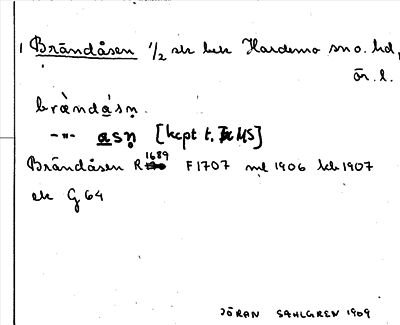 1 Brändåsen 1/2 sk bek Hardemo sn o. hd,
Ör. l.
brǽndåsn.
-"- asn [kept t. MS]
Brändåsen R 1689 F1707 ml 1906 jeb 1907
ek G 64
JÖRAN SAHLGREN 1909